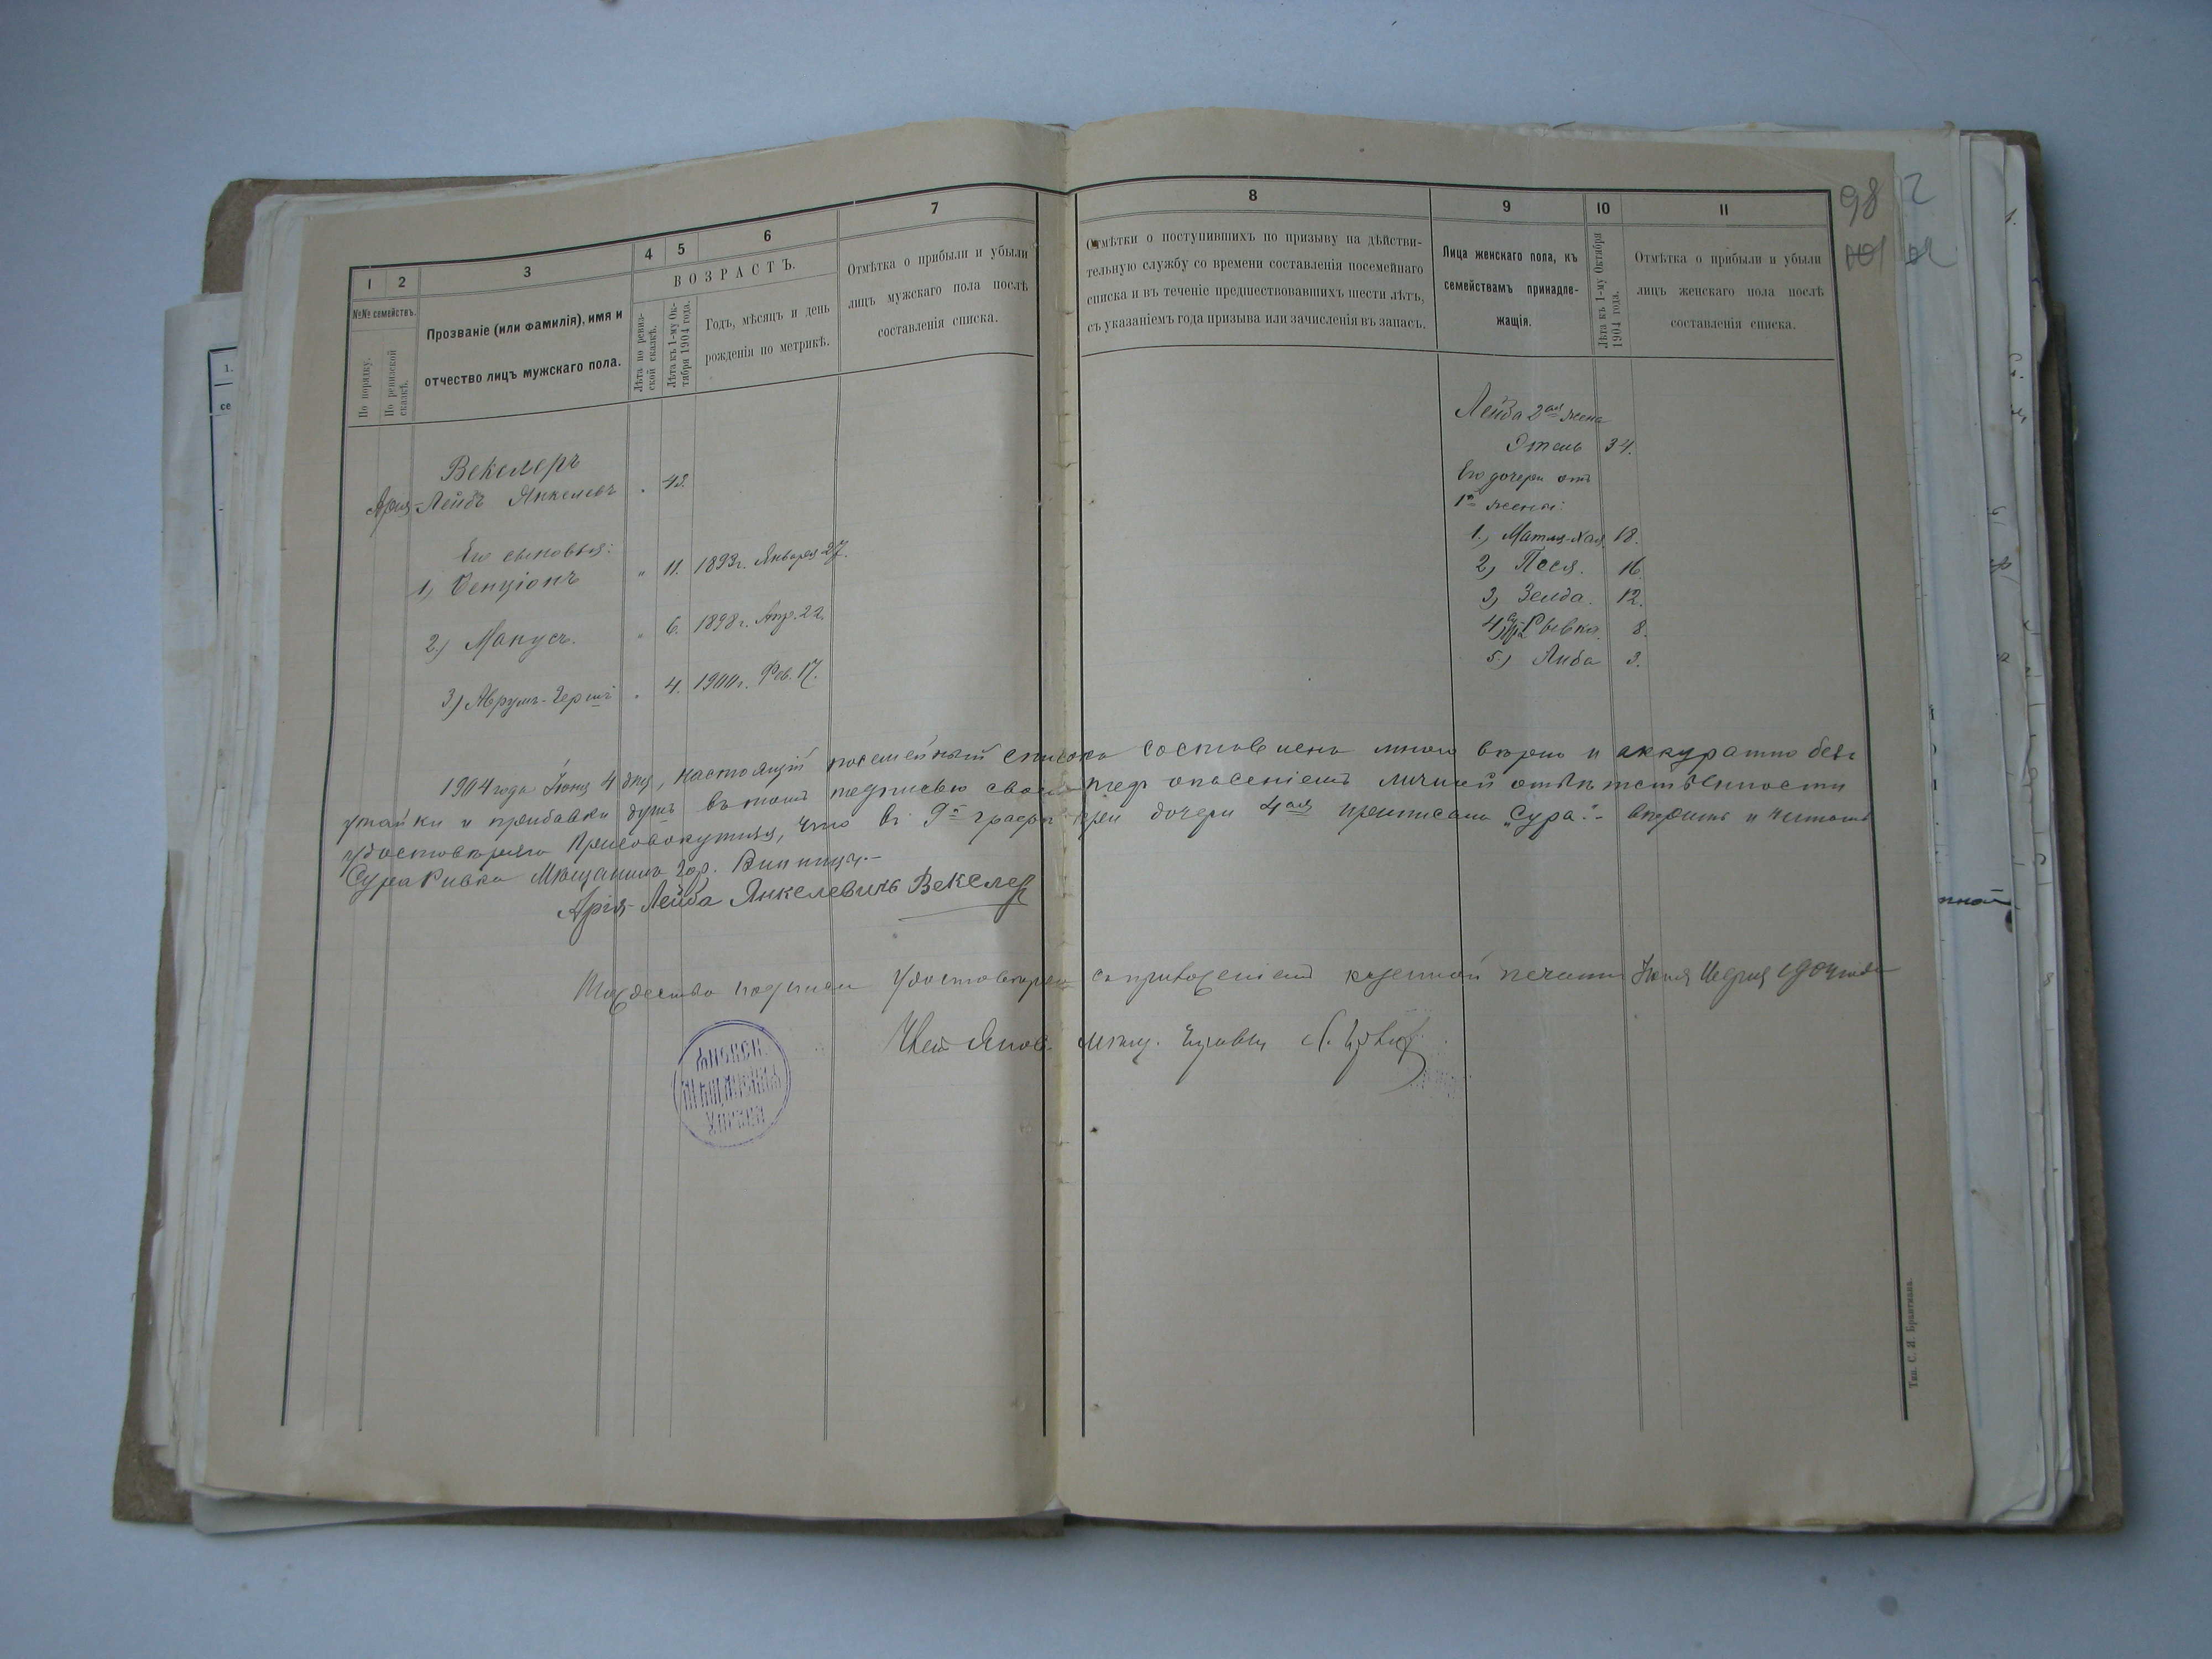 98
1
2
3
4
5
6
7
8
9
10
11
№№ семействъ.
По порядку.
По ревизской сказкѣ.
Прозваніе (или фамилія), имя и
отчество лицъ мужскаго пола.
ВОЗРАСТЪ.
Лѣта по ревиз-
ской сказкѣ.
Лѣта къ 1-му Ок-
тября 1904 года.
Годъ, мѣсяцъ и день
рожденія по метрикѣ.
Отмѣтка о прибыли и убыли
лицъ мужскаго пола послѣ
составленія списка.
Отмѣтки о поступившихъ по призыву на дѣйстви-
тельную службу со времени составленія посемейнаго
списка и въ теченіе предшествовавшихъ шести лѣтъ,
съ указаніемъ года призыва или зачисленія въ запасъ.
Лица женскаго пола, къ
семействамъ принадле-
жащія.
Лѣта къ 1-му Октября
1904 года.
Отмѣтка о прибыли и убыли
лицъ женскаго пола послѣ
составленія списка.
Векслеръ
Арія-Лейбъ Янкелевъ
Его сыновья:
1) Бенціонъ " 11. 1893г. Января 27.
2) Манусъ. " 6. 1898г. Апр. 22.
3) Аврумъ-Гершъ " 4. 1900г. Фев. 17.
Лейба 2ая жена
Этель 34.
Его дочери отъ
1й жены:
1) Матля-Хая 18.
2) Песя. 16.
3) Зелда. 12.
4) Ривка. 8.
5) Люба 3.
1904 года Іюня 4 дня, настоящій посемейный списокъ составленъ мною вѣрно и аккуратно безъ
утайки и прибавки душъ въ томъ подписью своею подъ опасеніемъ личной отвѣтственности
удостовѣряю Присовокупляя, что въ 9й графѣ при дочери 4ая приписано „Сура" вѣрить и читать
Сура Ривка Мѣщанинъ гор. Винницы.-
Арія-Лейба Янкелевичъ Векслер
Тождество подписи удостовѣряю съ приложеніемъ казенной печати Іюня 1904 года
МѢЩАНСКАЯ
УПРАВА
Тип. С. Я. Брантмань.